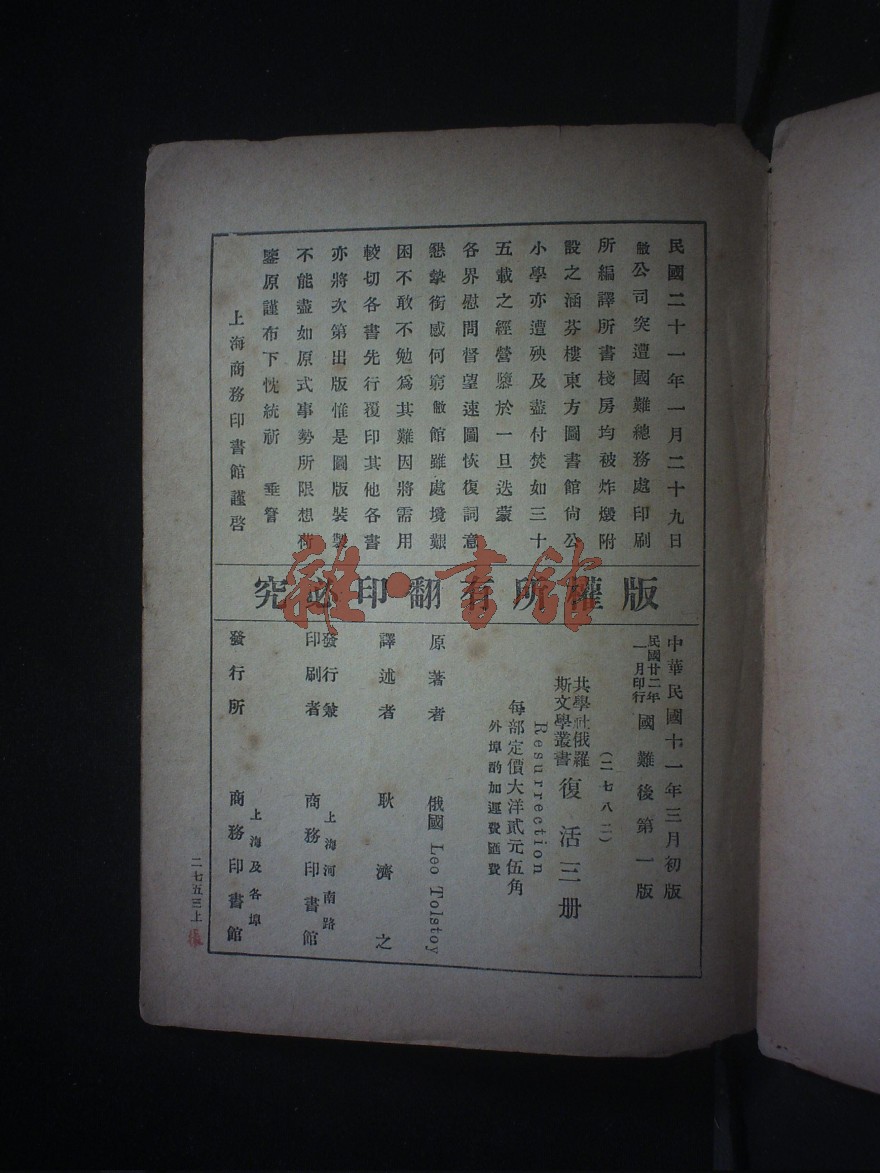 民國二十一年一月二十九日
敝公司突遭國難總務處印刷
所編譯所書棧房均被炸燬附
設之涵芬樓東方圖書館尙公
小學亦遭殃及盡付焚如三十
五載之經營隳於一旦迭蒙
各界慰問督望速圖恢復詞意
懇摯銜感何窮敝館雖處境艱
困不敢不勉爲其難因將需用
較切各書先行覆印其他各書
亦將次第出版惟是圖版裝製
不能盡如原式事勢所限想荷
鑒原謹布下忱統祈 垂詧
上海商務印書館謹啓
版權所有翻印必究
雜·書館
中華民國十一年三月初版
民國廿二年一月印行 國難後第一版
(二七八二)
共學社俄羅斯文學叢書 復活三册
Resurrection
每部定價大洋貳元伍角
外埠酌加運費匯費
原著者 俄國 Leo Tolstoy
譯述者 耿濟之
發行兼印刷者 上海河南路 商務印書館
發行所 上海及各埠 商務印書館
二七五三上